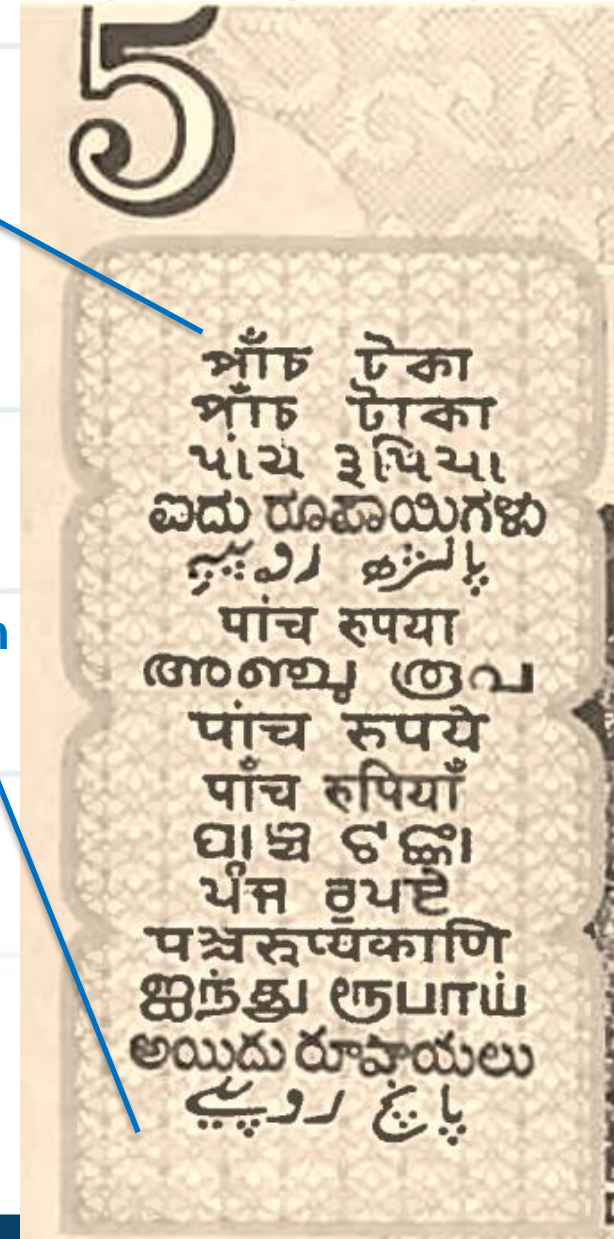 5
পাঁচ টকা
পাঁচ টাকা
પાંચ રૂપિયા
ಐದು ರೂಪಾಯಿಗಳು
पांच रुपया
അഞ്ചു രൂപ
पांच रुपये
पाँच रुपियाँ
ପାଞ୍ଚ ଟଙ୍କା
ਪੰਜ ਰੁਪਏ
पञ्चरूप्यकाणि
ஐந்து ரூபாய்
అయిదు రూపాయలు
پانچ روپیے